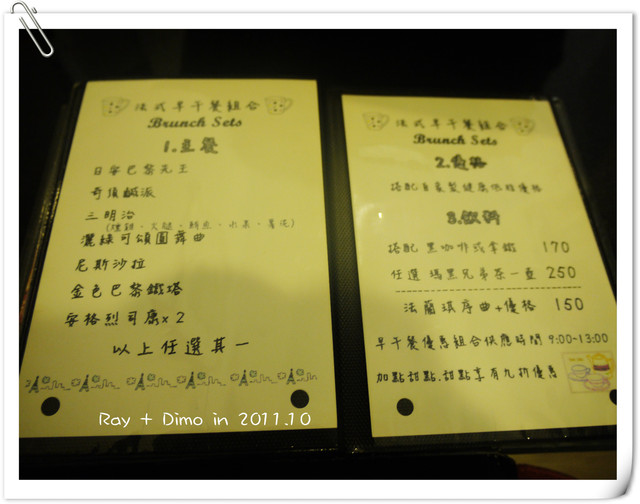 法式早午餐組合
Brunch Sets
1.主餐
日安巴黎先生
奇後鹹派
三明治
(燻雞、火腿、鮪魚、水果、薯泥)
灑綠可頌圓舞曲
尼斯沙拉
金色巴黎鐵塔
安格烈司康x2
以上任選其一
法式早午餐組合
Brunch Sets
2.優格
搭配自家製健康低脂優格
3.飲料
搭配 黑咖啡或拿鐵 170
任選 瑪黑兄弟茶一壺 250
法蘭琪序曲+優格 150
早午餐優惠組合供應時間 9:00~13:00
加點甜點.甜點享有九折優惠
Ray + Dimo in 2011.10